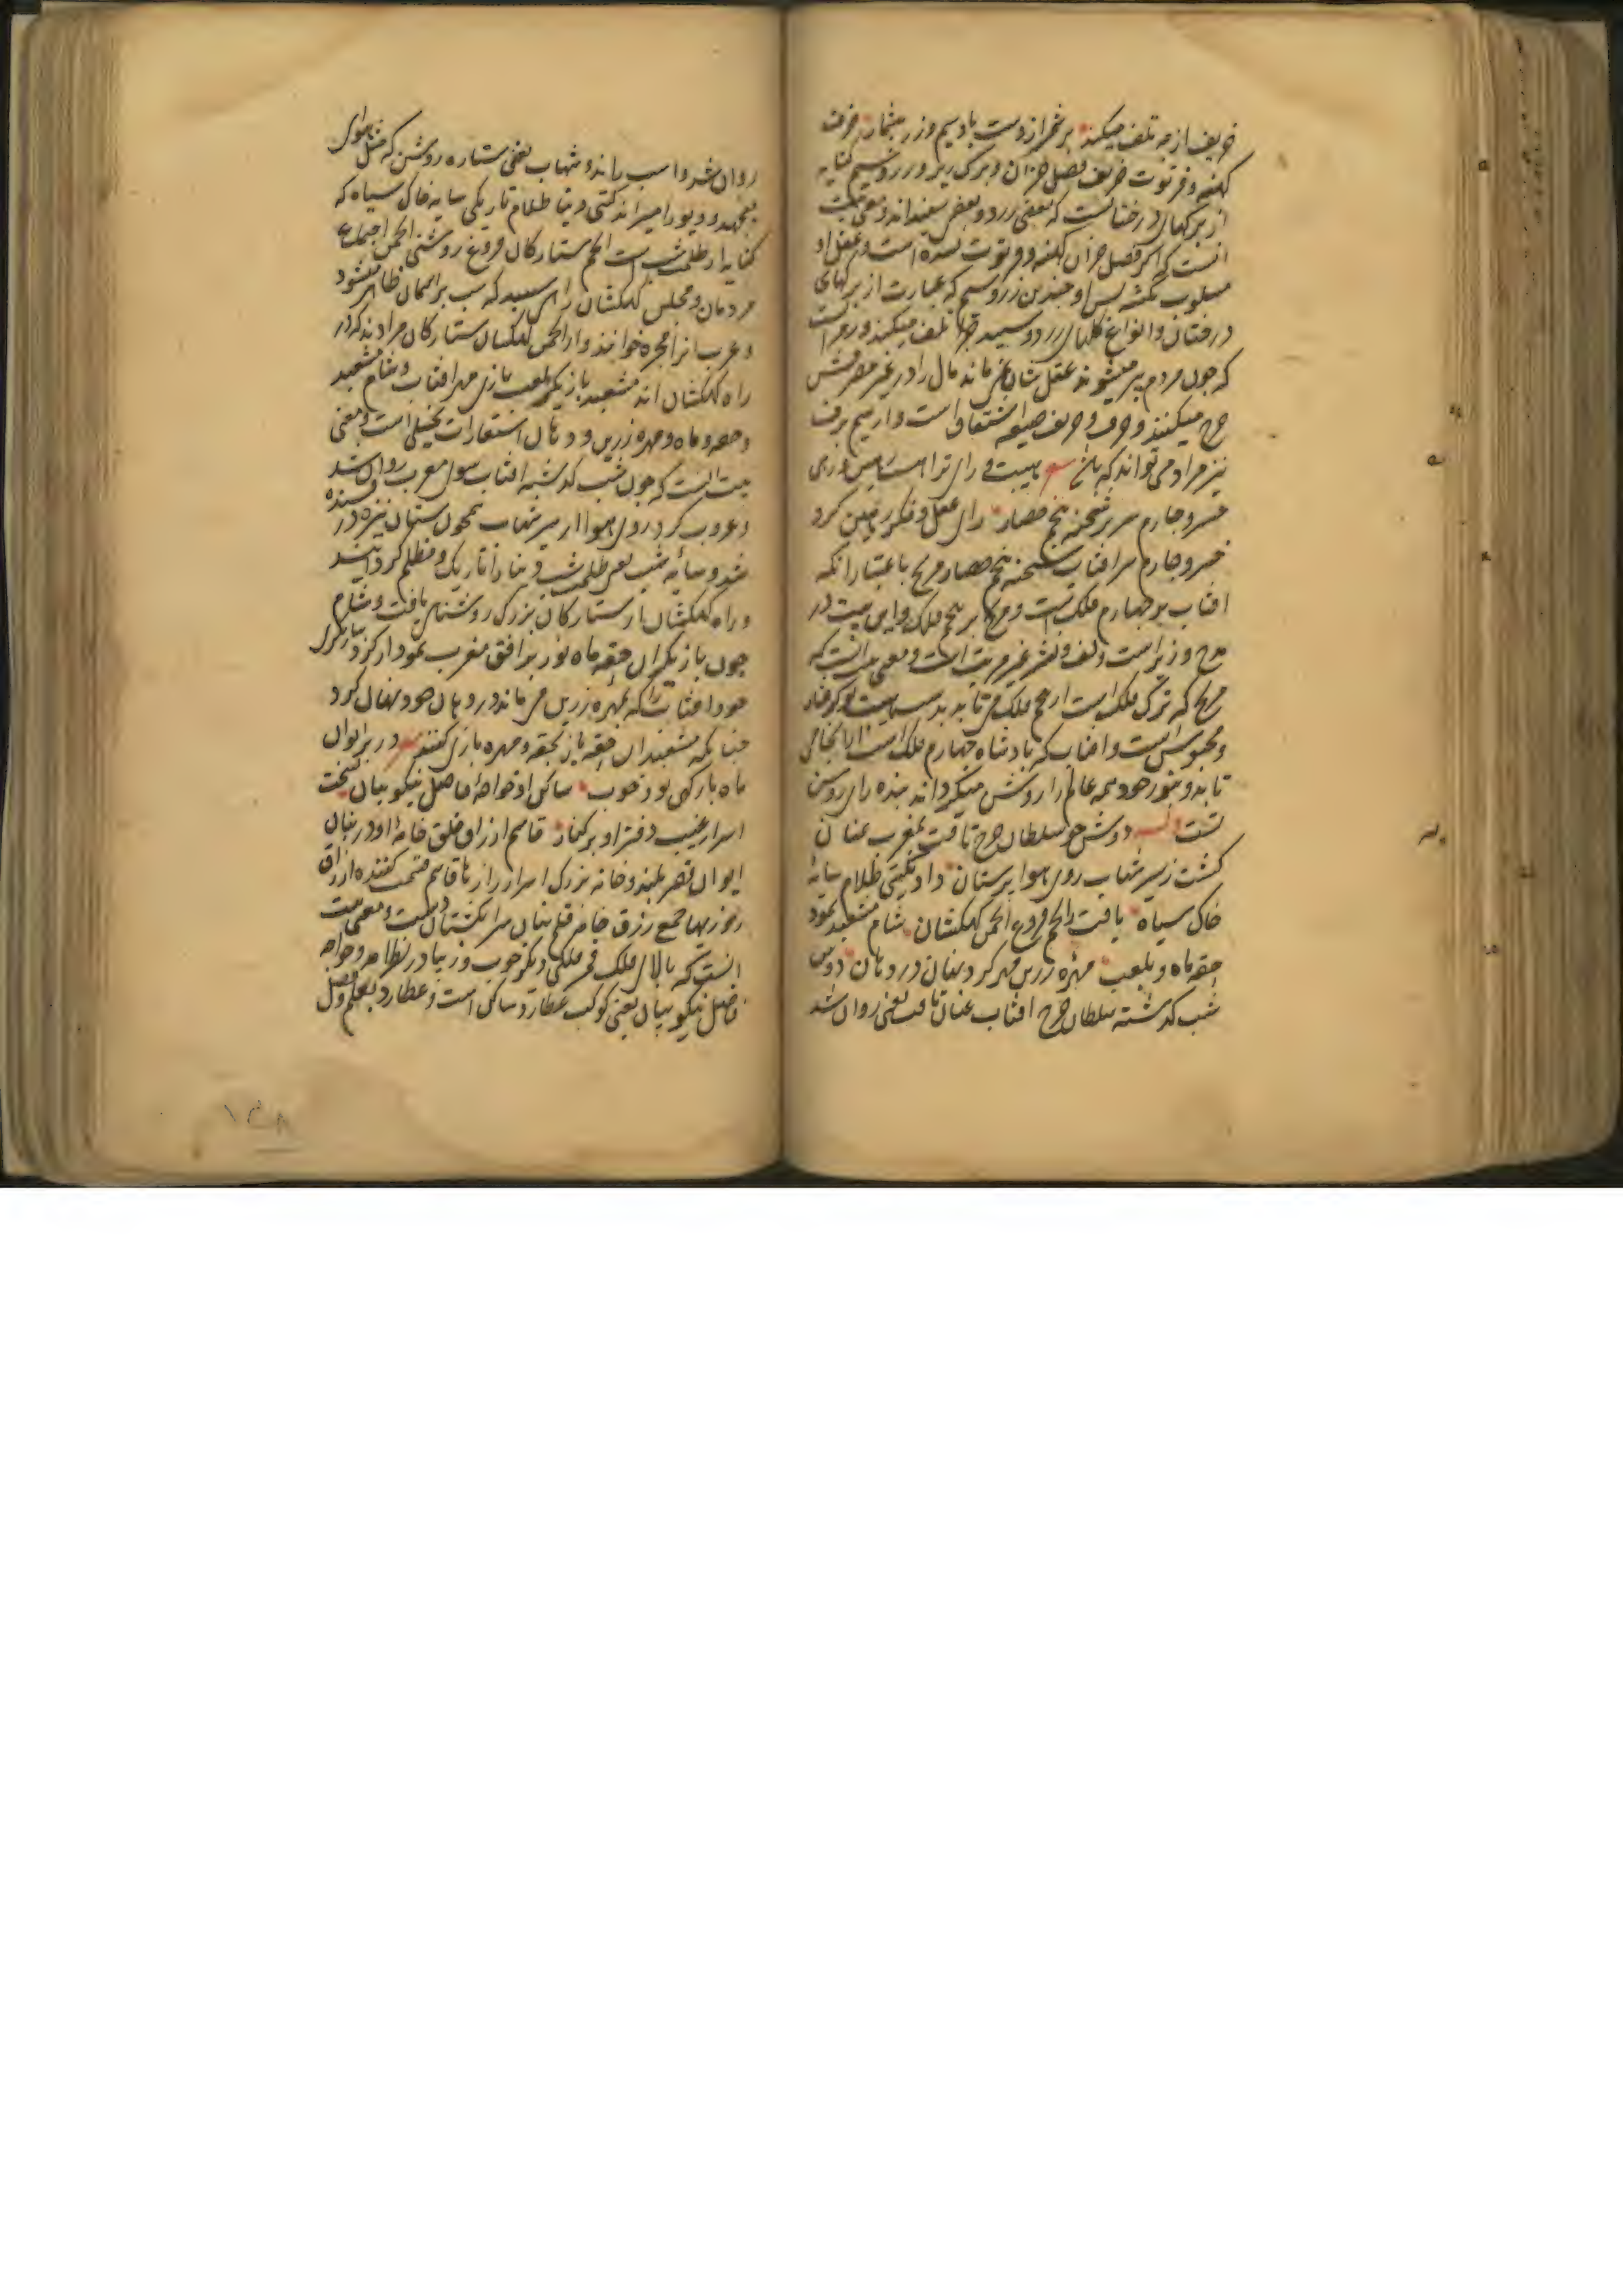 خریف از چه تلف میکند بر شمر از دست باد سیم و زر بیشمار خرف
کهنه و فرتوت خریف فصل خزان و برک ریز و زر و سیم کنایه
از برکهای درختانست که بعضی زرد و بعضی سفیداند و معنی بیت
انست که اکر فصل خزان کهنه و فرتوت نشده است و عقل او
مسلوب نکشته پس او چندین زر و سیم که عبارت از برکهای
درختان و انواع کلهای زرد و سپید چرا تلف میکند و
که چون مردم پیر میشوند عقل شان نمی ماند مال را در غیر مصرفش
خرج میکنند و خرف و خریف صیغه اشتقاق است و از سیم برف
نیز مراد می تواند که باشد بیت رای ترا
خسرو چارم سریر شحنه پنجم حصار رای عقل و فکر کرد
خسرو چارم سریر افتاب شحنه پنجم حصار مریخ باعتبار انکه
افتاب بر چهارم فلکست و مریخ بر پنجم فلک و این بیت در
مدح وزیر است و لف و نشر غیر مرتب است و معنی بیت انست که
مریخ که ترک فلک است از پنجم فلک می تابد
و محبوس است و افتاب که بادشاه چهارم فلک است
تابد و بنور خود همه عالم را روشن میکرداند بنده رای روشن
تست دوش چو سلطان چرخ تافت بمغرب عنان
کشت ز سیر شهاب روی هوا پرستان داد بکیتی ظلام سایه
خاک سیاه یافت ز انجم فروغ انجمن کهکشان شام مشعبد نمود
حقه ماه و بلعب مهره زرین مهر کرد نهان در دهان دوش
شب کذشته سلطان چرخ افتاب عنان تافت یعنی روان شد
روان شد و اسب راند و شهاب یعنی ستاره روشن که مثل هوای
بجهد و دیو را میراند کیتی دنیا ظلام تاریکی سایه خاک سیاه که
کنایه از ظلمت شب است انجم ستارکان فروغ روشنی انجمن اجتماع
مردمان و مجلس کهکشان راهی سپید که شب بر اسمان ظاهر میشود
و عرب انرا مجره خوانند و از انجمن کهکشان ستارکان مرادند که در
راه کهکشان اند مشعبد بازیکر لعب بازی مهر افتاب و شام مشعبد
و حقه و ماه و مهره زرین و دهان استعارات تخییلی است و معنی
بیت انست که چون شب کذشته افتاب سوی مغرب روان شد
و غروب کرد روی هوا از سیر شهاب همچون ستان نیزه
شد و سایه شب یعنی ظلمت شب دنیا را تاریک و مظلم کردانید
و راه کهکشان از ستارکان بزرک روشنی یافت و شام
چون بازیکران حقه ماه نو را بر افق مغرب نمودار کرد و ببازیکری
خود افتاب را که بمهره زرین می ماند در دهان خود نهان کرد
چنانکه مشعبدان حقه باز بحقه و مهره بازی کنند در بر ایوان
ماه بارکهی بود خوب ساکن او خواجه فاضل نیکو بیان
اسرار غیب دفتر او بر کنار قاسم ارزاق خلق خامه او در بنان
ایوان قصر بلند و خانه بزرک اسرار رازها قاسم قسمت کننده ارزاق
روزیها جمع رزق خامه قلم بنان سر انکشتان دست و معنی بیت
انست که بالای فلک قمر فلکی دیکر خوب و زیبا در نظر امد و خواجه
فاضل نیکو بیان یعنی کوکب عطارد ساکن است و عطارد بعلم و فضل